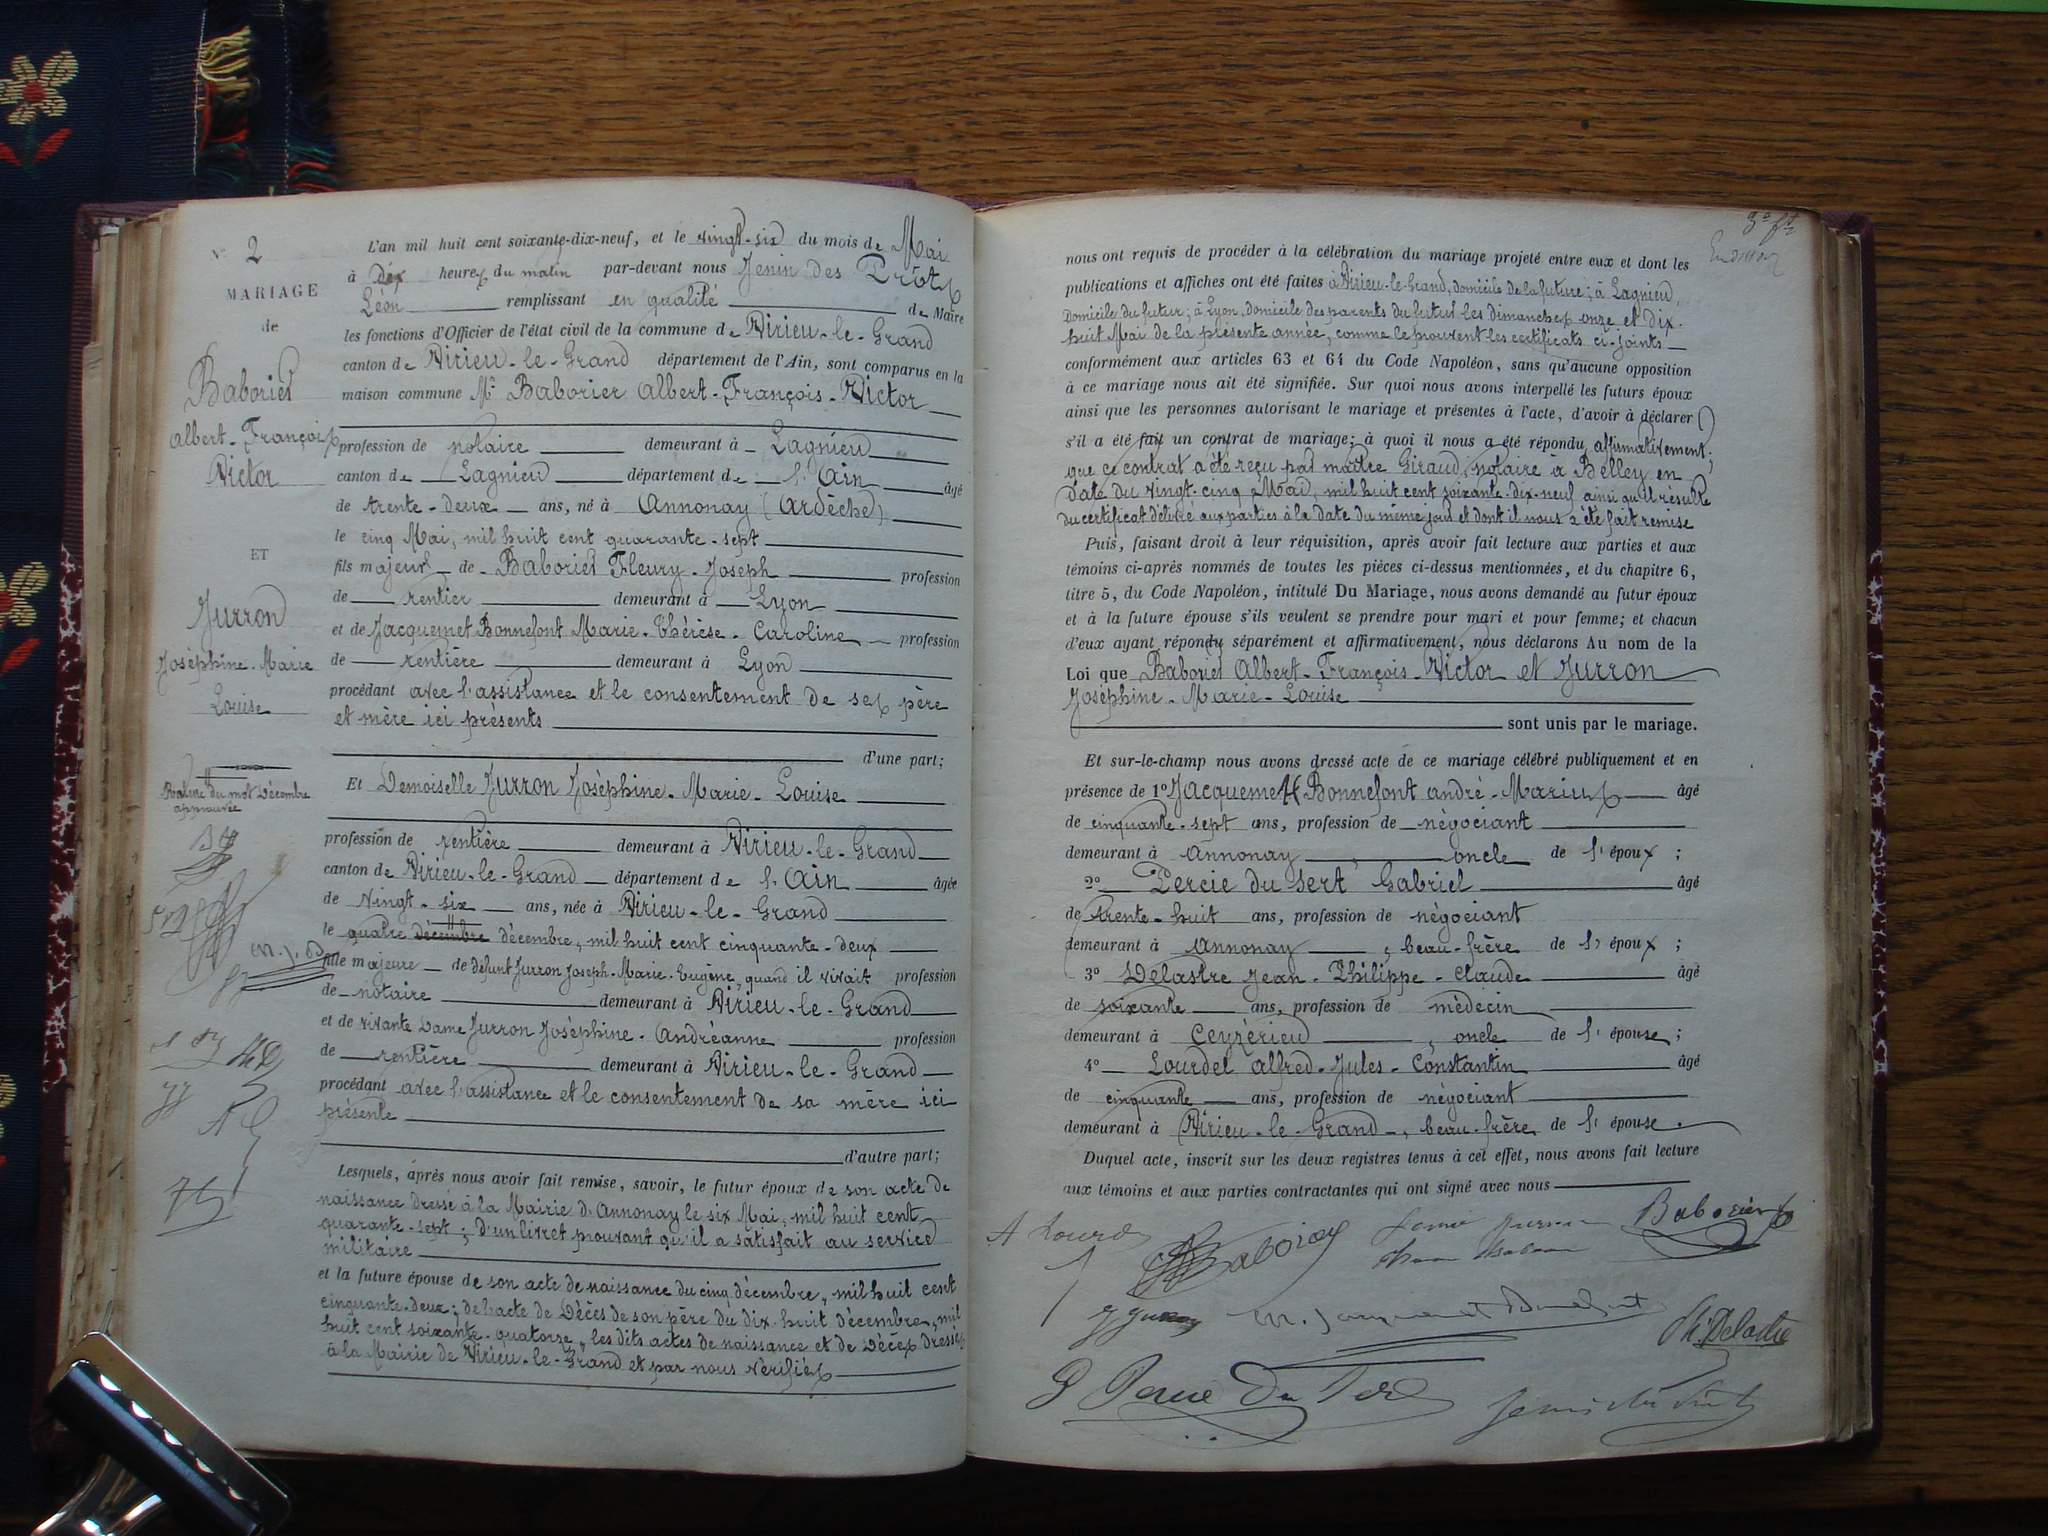 N° 2
MARIAGE
de
Baborier
Albert-François
Victor
ET
Jurron
Joséphine-Marie
Louise
Rature du mot Décembre
approuvée
L'an mil huit cent soixante-dix-neuf, et le vingt-six du mois de Mai
à dix heures du matin par-devant nous Jenin des Prôts
Léon remplissant en qualité de Maire
les fonctions d'Officier de l'état civil de la commune de Virieu-le-Grand
canton de Virieu-le-Grand département de l'Ain, sont comparus en la
maison commune Mr Baborier Albert-François-Victor
profession de notaire demeurant à Lagnieu
canton de Lagnieu département de l'Ain âgé
de trente-deux ans, né à Annonay (Ardèche)
le cinq Mai, mil huit cent quarante-sept
fils majeur de Baborier Fleury-Joseph profession
de rentier demeurant à Lyon
et de Jacquemet Bonnefont Marie-Thérèse-Caroline profession
de rentière demeurant à Lyon
procédant avec l'assistance et le consentement de ses père
et mère ici présents
d'une part;
Et Demoiselle Jurron Joséphine-Marie-Louise
profession de rentière demeurant à Virieu-le-Grand
canton de Virieu-le-Grand département de l'Ain âgée
de vingt-six ans, née à Virieu-le-Grand
le quatre décembre décembre, mil huit cent cinquante-deux
fille majeure de défunt Jurron Joseph-Marie-Eugène, quand il vivait profession
de notaire demeurant à Virieu-le-Grand
et de vivante Dame Jurron Joséphine-Andréanne profession
de rentière demeurant à Virieu-le-Grand
procédant avec l'assistance et le consentement de sa mère ici
présente
d'autre part;
Lesquels, après nous avoir fait remise, savoir, le futur époux de son acte de
naissance dressé à la Mairie d'Annonay le six Mai, mil huit cent
quarante-sept; d'un livret prouvant qu'il a satisfait au service
militaire
et la future épouse de son acte de naissance du cinq décembre, mil huit cent
cinquante-deux; de l'acte de Décès de son père du dix-huit décembre, mil
huit cent soixante-quatorze, les dits actes de naissance et de Décès dressés
à la Mairie de Virieu-le-Grand et par nous vérifiés
nous ont requis de procéder à la célébration du mariage projeté entre eux et dont les
publications et affiches ont été faites à Virieu-le-Grand, domicile de la future; à Lagnieu,
domicile du futur; à Lyon, domicile des parents du futur les dimanches onze et dix-
huit Mai de la présente année, comme le prouvent les certificats ci-joints
conformément aux articles 63 et 64 du Code Napoléon, sans qu'aucune opposition
à ce mariage nous ait été signifiée. Sur quoi nous avons interpellé les futurs époux
ainsi que les personnes autorisant le mariage et présentes à l'acte, d'avoir à déclarer
s'il a été fait un contrat de mariage; à quoi il nous a été répondu affirmativement;
que ce contrat a été reçu par maître Giraud, notaire à Belley en
date du vingt-cinq Mai, mil huit cent soixante-dix-neuf ainsi qu'il résulte
du certificat délivré aux parties à la date du même jour et dont il nous a été fait remise
Puis, faisant droit à leur réquisition, après avoir fait lecture aux parties et aux
témoins ci-après nommés de toutes les pièces ci-dessus mentionnées, et du chapitre 6,
titre 5, du Code Napoléon, intitulé Du Mariage, nous avons demandé au futur époux
et à la future épouse s'ils veulent se prendre pour mari et pour femme; et chacun
d'eux ayant répondu séparément et affirmativement, nous déclarons Au nom de la
Loi que Baborier Albert-François-Victor et Jurron
Joséphine-Marie-Louise
sont unis par le mariage.
Et sur-le-champ nous avons dressé acte de ce mariage célébré publiquement et en
présence de 1° Jacquemet Bonnefont André-Marius âgé
de cinquante-sept ans, profession de négociant
demeurant à Annonay, oncle de l'époux;
2° Percie du Sert Gabriel âgé
de trente-huit ans, profession de négociant
demeurant à Annonay, beau-frère de l'époux;
3° Delastre Jean-Philippe-Claude âgé
de soixante ans, profession de médecin
demeurant à Ceyzérieu, oncle de l'épouse;
4° Lourdel Alfred-Jules-Constantin âgé
de cinquante ans, profession de négociant
demeurant à Virieu-le-Grand, beau-frère de l'épouse.
Duquel acte, inscrit sur les deux registres tenus à cet effet, nous avons fait lecture
aux témoins et aux parties contractantes qui ont signé avec nous
A Lourdel
Baborier
Baborier
Ph. Delastre
G Percie Du Sert